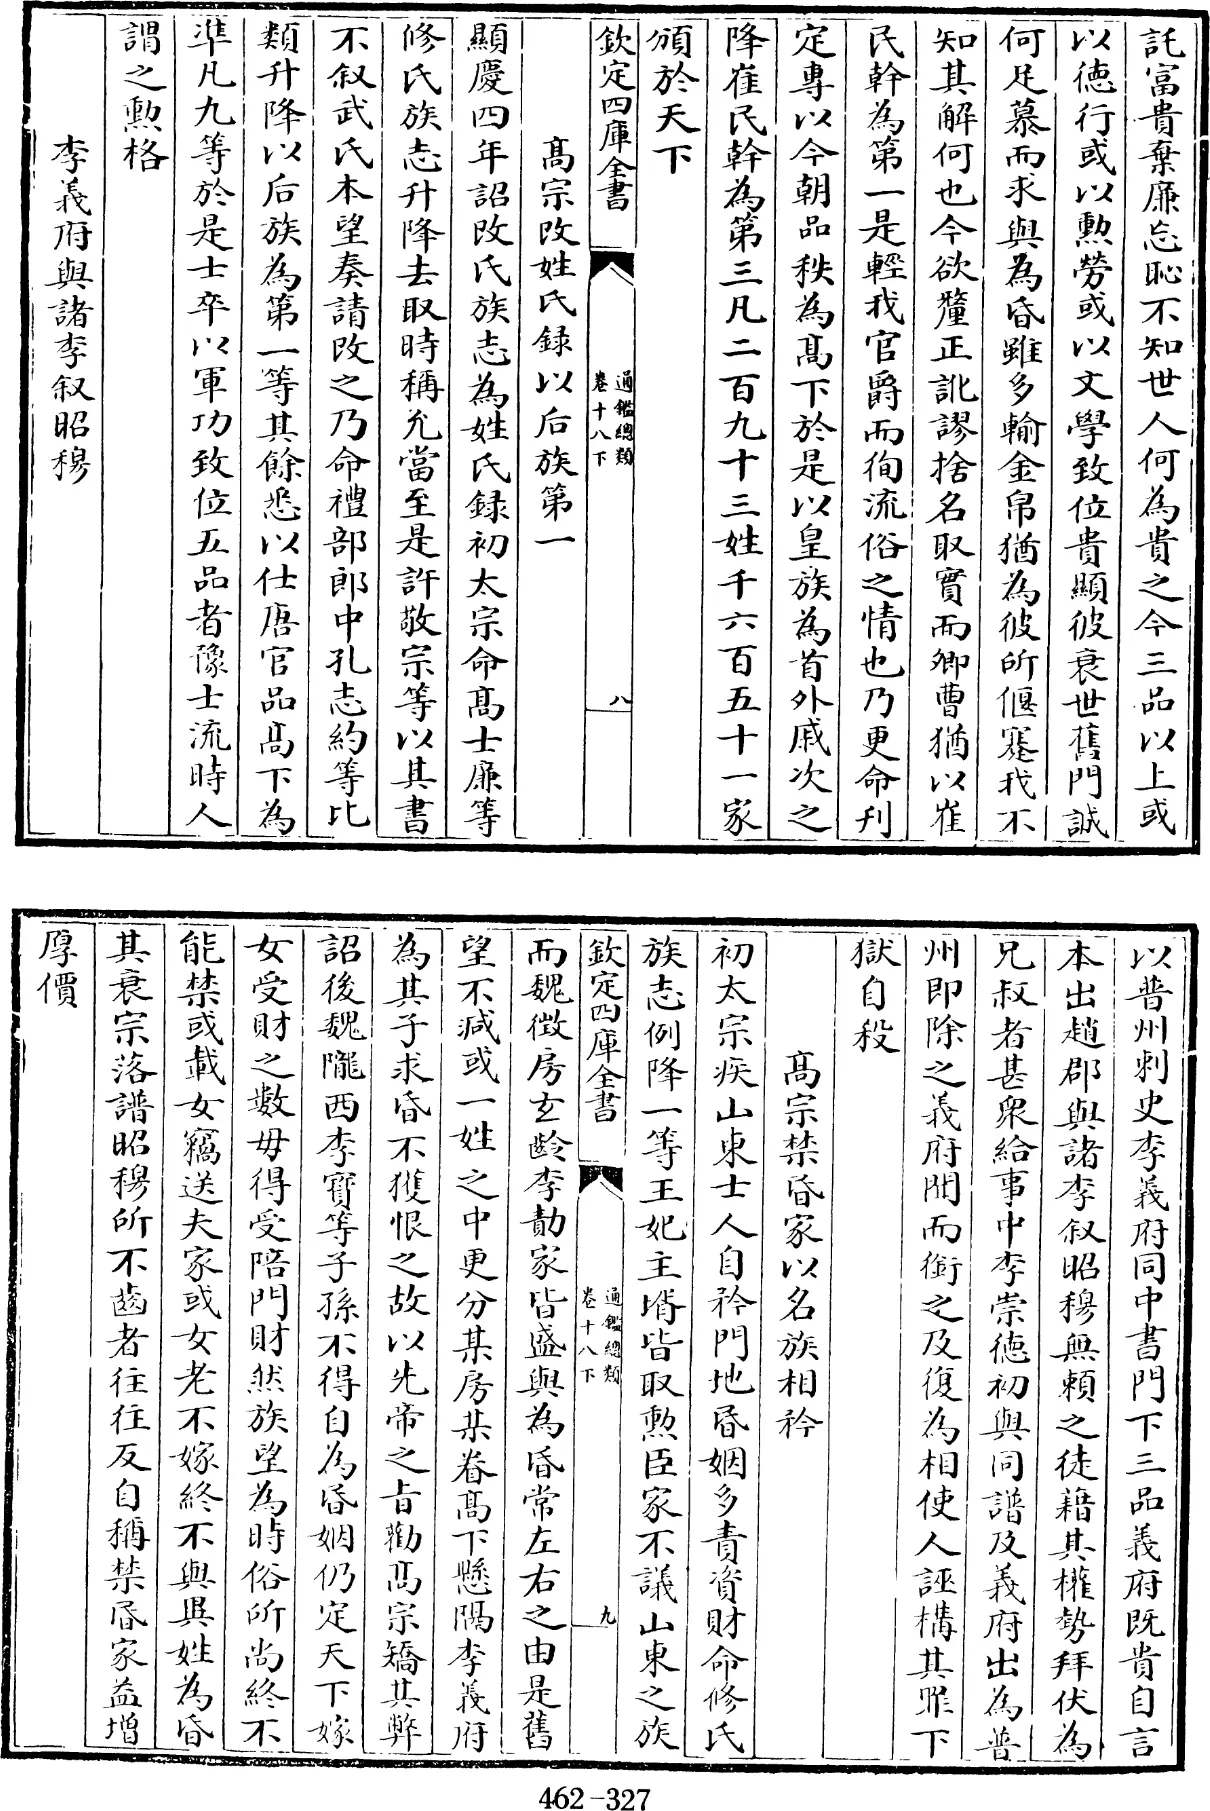 託富貴棄廉忘恥不知世人何為貴之今三品以上或
以徳行或以勲勞或以文學致位貴顯彼衰世舊門誠
何足慕而求與為昏雖多輸金帛猶為彼所偃蹇我不
知其解何也今欲釐正訛謬捨名取實而卿曹猶以崔
民幹為第一是輕我官爵而徇流俗之情也乃更命刋
定專以今朝品秩為髙下於是以皇族為首外戚次之
降崔民幹為第三凡二百九十三姓千六百五十一家
頒於天下
欽定四庫全書
通鑑總類
卷十八下
八
髙宗改姓氏録以后族第一
顯慶四年詔改氏族志為姓氏録初太宗命髙士廉等
修氏族志升降去取時稱允當至是許敬宗等以其書
不叙武氏本望奏請改之乃命禮部郎中孔志約等比
類升降以后族為第一等其餘悉以仕唐官品髙下為
準凡九等於是士卒以軍功致位五品者豫士流時人
謂之勲格
李義府與諸李叙昭穆
以普州刺史李義府同中書門下三品義府既貴自言
本出趙郡與諸李叙昭穆無賴之徒藉其權勢拜伏為
兄叔者甚衆給事中李崇徳初與同譜及義府出為普
州即除之義府聞而銜之及復為相使人誣構其罪下
獄自殺
髙宗禁昏家以名族相矜
初太宗疾山東士人自矜門地昏姻多責資財命修氏
族志例降一等王妃主壻皆取勲臣家不議山東之族
欽定四庫全書
通鑑總類
卷十八下
九
而魏徴房玄齡李勣家皆盛與為昏常左右之由是舊
望不減或一姓之中更分某房某眷髙下懸隔李義府
為其子求昏不獲恨之故以先帝之旨勸髙宗矯其弊
詔後魏隴西李寶等子孫不得自為昏姻仍定天下嫁
女受財之數毋得受陪門財然族望為時俗所尚終不
能禁或載女竊送夫家或女老不嫁終不與異姓為昏
其衰宗落譜昭穆所不齒者往往反自稱禁昏家益增
厚價
462-327